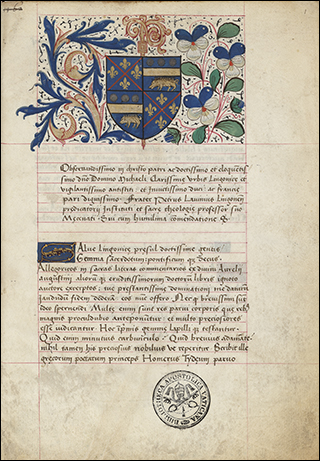 Obseruandissimo in christo patri ac doctissimo et eloquetis
simo dño Domino Michaeli Clarissime Vrbis Lingonice et
vigilantissimo antistiti et inuictissimo duci ac francie
pari dignissimo Frater Petrus Lauinius Lingonen
predicatorii Instituti et sacre theologie professor suo
Mecenati Sui cum humilima comendatione S
Alue lingonice presul doctissime gentis
Gemma sacerdotum pontificum que Decus
Allegoricos in sacras literas commentarios ex diuini Aurelij
augustini aliorum q eruditissimorum doctorum libris ignoto
autore exceptos tue prestantissime dominationi
dedera eos nuc offero Ne q breuissimi sint
ideo spernendi Multe enim sunt res parui corporis que reb
magnis procul dubio anteponuntur et multo preciosiores
esse iudicantur Hoc ipsum gemme lapilli q testantur
Quid enim minutius carbunculo Quid breuius adamante
nihil tamen his preciosius nobilius ve reperitur Scribit ille
grecorum poetarum princeps Homerus Tydeum paruo
BIBLIOTHECA APOSTOLICA VATICANA